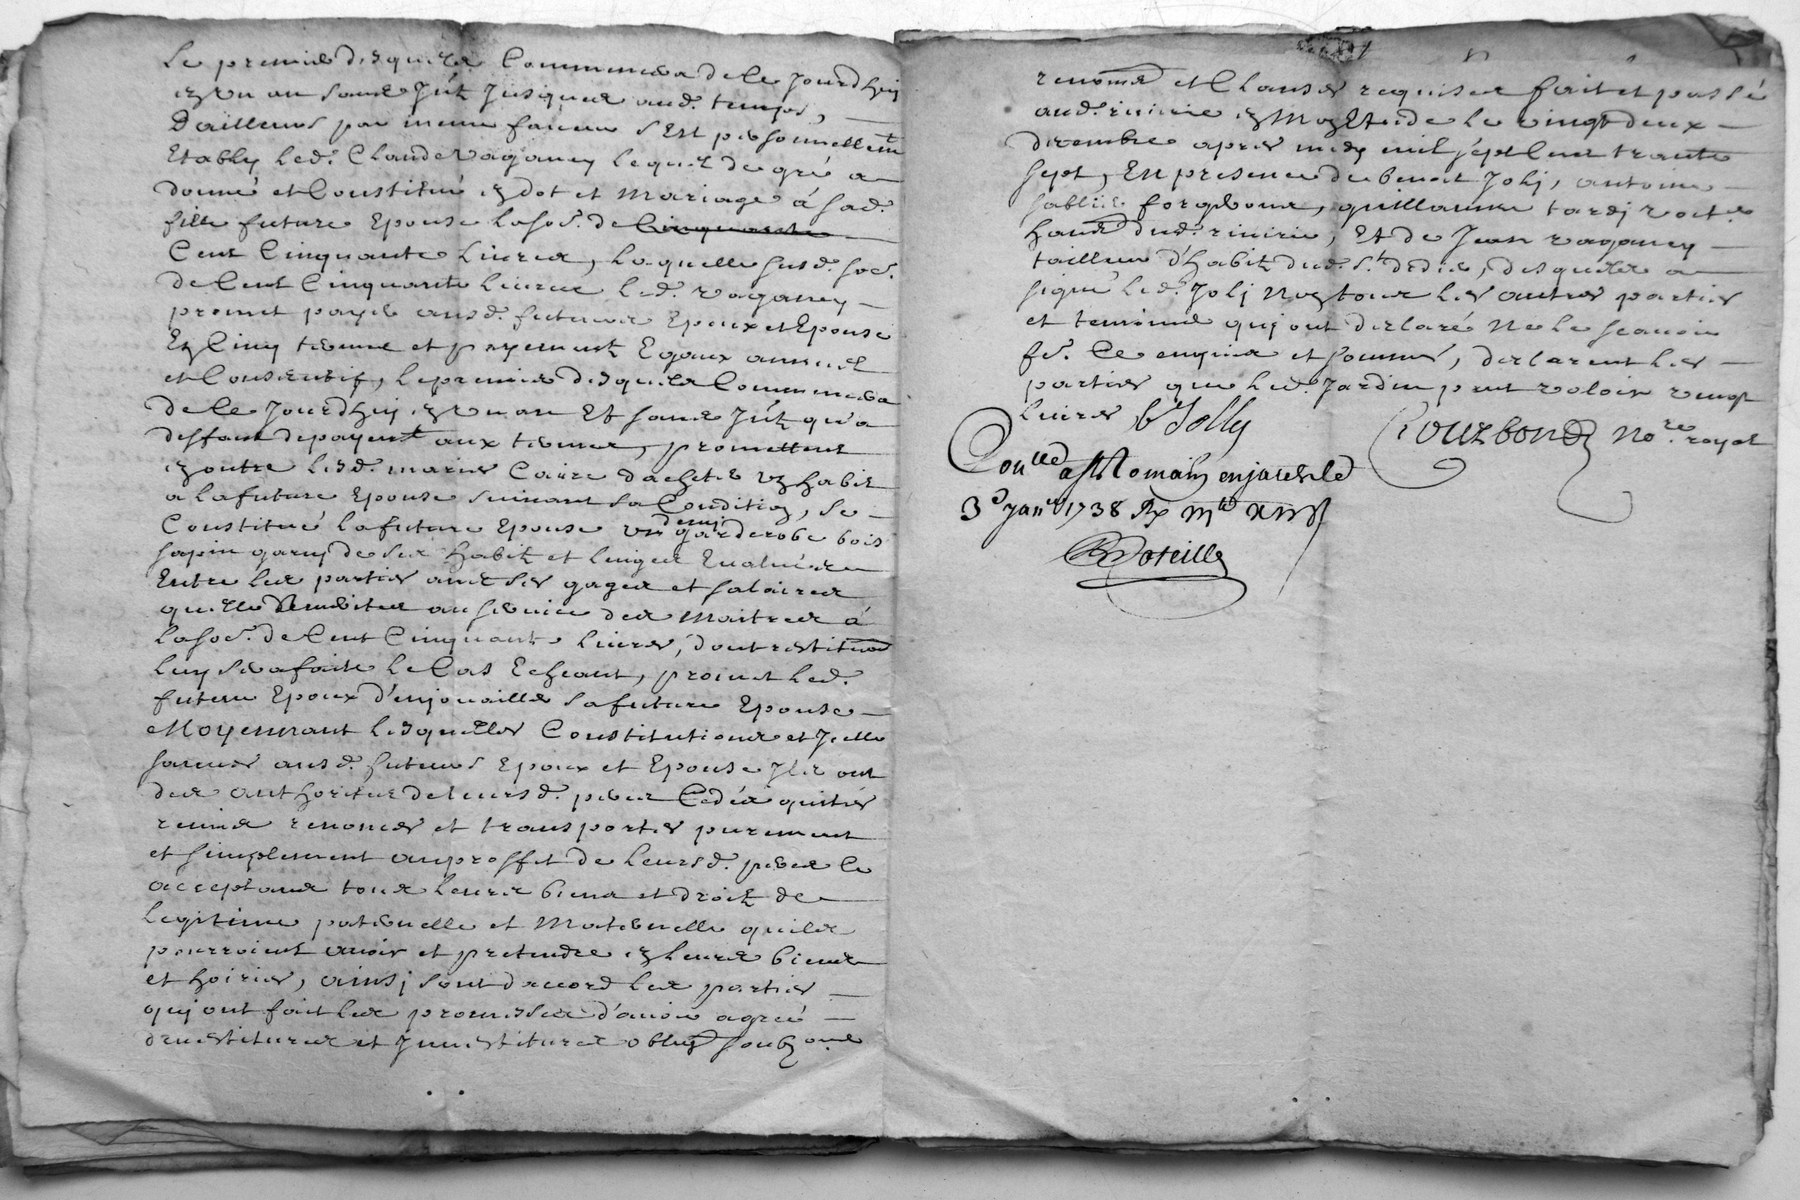 Le premier desquels Commencera de ce Jourdhuy
en un an sans Jnt Jusques aud. temps,
D'ailleurs par meme faveur s'est personnellemt
Etably led. Claude Vaganey lequel de gré a
donné et Constitué en dot et mariage à sad.
fille future Epouse la so͠e. de Cinquante
Cent Cinquante Livres, laquelle susd. so͠e.
de Cent Cinquante Livres led. Vaganey
promet payer ausd. futurs Epoux et Epouse
En Cinq termes et payements Egaux annuels
et Consecutifs, le premier desquels Commencera
de ce Jourdhuy en un an Et sans Jnt qu'a
deffaut de payemt aux termes, promettent
en outre lesd. mariés Caire d'acheter un habit
a la future Epouse suivant sa Condition, se
Constitue la future Epouse un demi garderobe bois
sapin garny de ses habits et linges Evalués
Entre les parties avec ses gages et salaires
qu'elle a au service des Maitres à
la so͠e. de Cent Cinquante livres, dont restitu͠on
luy sera faite le Cas Echeant, promet led.
futeur Epoux d'enjouailler sa future Epouse
Moyennant lesquelles Constitutions et Jcelles
faites ausd. futeurs Epoux et Epouse Jls ont
des authorités de leursd. peres Cedés quités
remis renoncés et transportés purement
et simplement au proffit de leursd. peres Ce
acceptans tous leurs biens et droits de
Legitime paternelle et Maternelle quils
pourroient avoir et pretendre en leurs biens
et hoiries, ainsi sont d'accord les parties
qui ont fait les promesses d'avoir agreé
devestitures et Jnvestitures oblig͠on soub͠on
renon͠on et Clauses requises fait et passé
aud. rivirie en Mon Etude le vingt deux
decembre apres midy mil sept Cent trante
sept, En presence de benoit Joli, antoine
, guillaume tardi voit.
habt. dud. rivirie, Et de Jean vaganey
tailleur d'habits dud. St. didié, desquels a
signé led. Joli Non tous les autres parties
et temoins qui ont declaré Ne le scavoir
fe. Ce enquis et sommés, declarent les
parties que led. Jardin peut valoir vingt
livres b Jolly
Courbon No.re royal
Conllé a St Romain en jarest le
3e janr 1738 Rx
Bateille